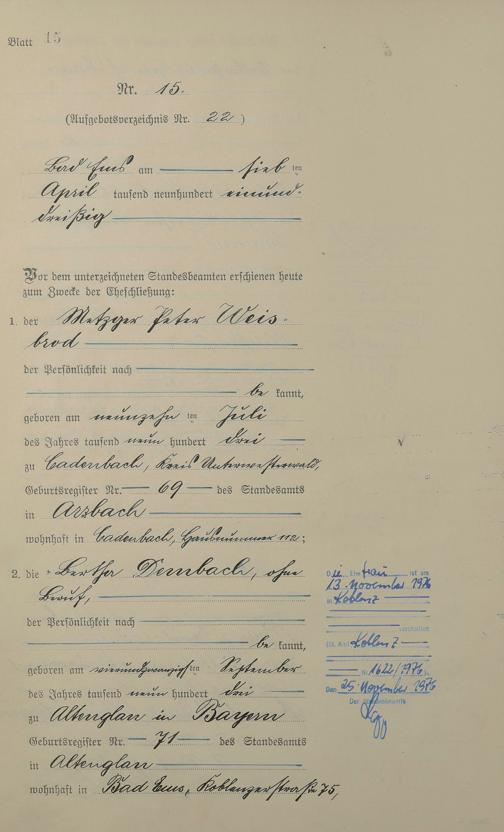 Blatt 15
Nr. 15.
(Aufgebotsverzeichnis Nr. 22 )
Bad Ems am sieb ten
April tausend neunhundert einund-
dreißig
Vor dem unterzeichneten Standesbeamten erschienen heute
zum Zwecke der Eheschließung:
1. der Metzger Peter Weis-
brod
der Persönlichkeit nach
be kannt,
geboren am neunzehn ten Juli
des Jahres tausend neun hundert drei
zu Cadenbach, Kreis Unterwesterwald,
Geburtsregister Nr. 69 des Standesamts
in Arzbach
wohnhaft in Cadenbach, Hausnummer 112;
2. die Bertha Dembach, ohne
Beruf,
der Persönlichkeit nach
be kannt,
geboren am vierundzwanzigsten September
des Jahres tausend neun hundert drei
zu Altenglan in Bayern
Geburtsregister Nr. 71 des Standesamts
in Altenglan
wohnhaft in Bad Ems, Koblenzerstraße 75,
Die Ehefrau ist am
13. November 1976
in Koblenz
verstorben
(St. Amt Koblenz
Nr. 1622/1976).
Den 25. November 1976